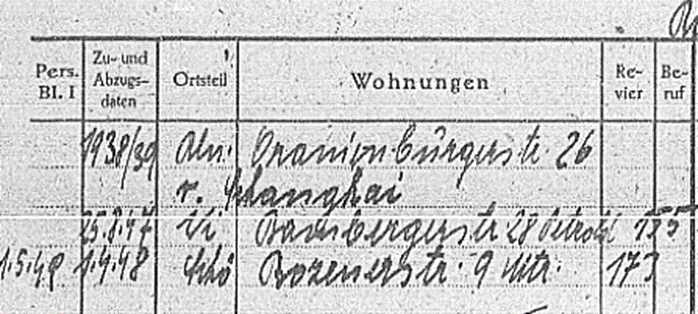 Pers. Bl. I Zu- und Abzugs- daten Ortsteil Wohnungen Re- vier Be- ruf
1938/39 Bln. Oranienburgerstr. 26
n. Shanghai
25.8.47 Wi Bambergerstr 28 155
1.5.48 1.4.48 Schö Bozenerstr. 9 Utr. 173